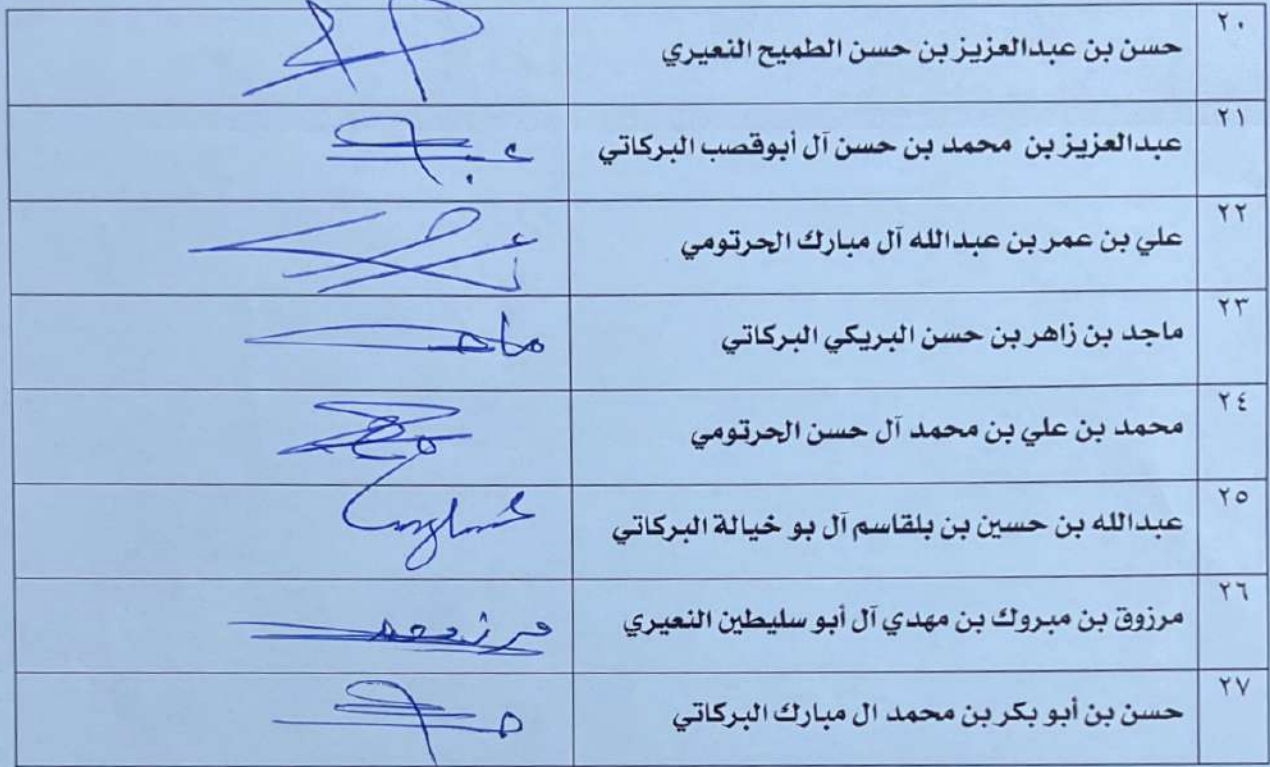 ٢٠ حسن بن عبدالعزيز بن حسن الطميح النعيري
٢١ عبدالعزيز بن محمد بن حسن آل أبوقصب البركاتي
٢٢ علي بن عمر بن عبدالله آل مبارك الحرتومي
٢٣ ماجد بن زاهر بن حسن البريكي البركاتي ماجد
٢٤ محمد بن علي بن محمد آل حسن الحرتومي
٢٥ عبدالله بن حسين بن بلقاسم آل بو خيالة البركاتي
٢٦ مرزوق بن مبروك بن مهدي آل أبو سليطين النعيري
٢٧ حسن بن أبو بكر بن محمد ال مبارك البركاتي